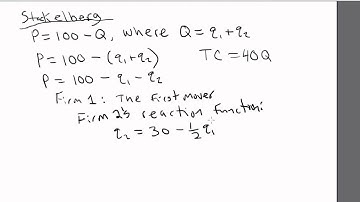 Stakelberg
P = 100 - Q, where Q = q₁ + q₂
P = 100 - (q₁ + q₂) TC = 40Q
P = 100 - q₁ - q₂
Firm 1: The First Mover
Firm 2's reaction function:
q₂ = 30 - ½q₁